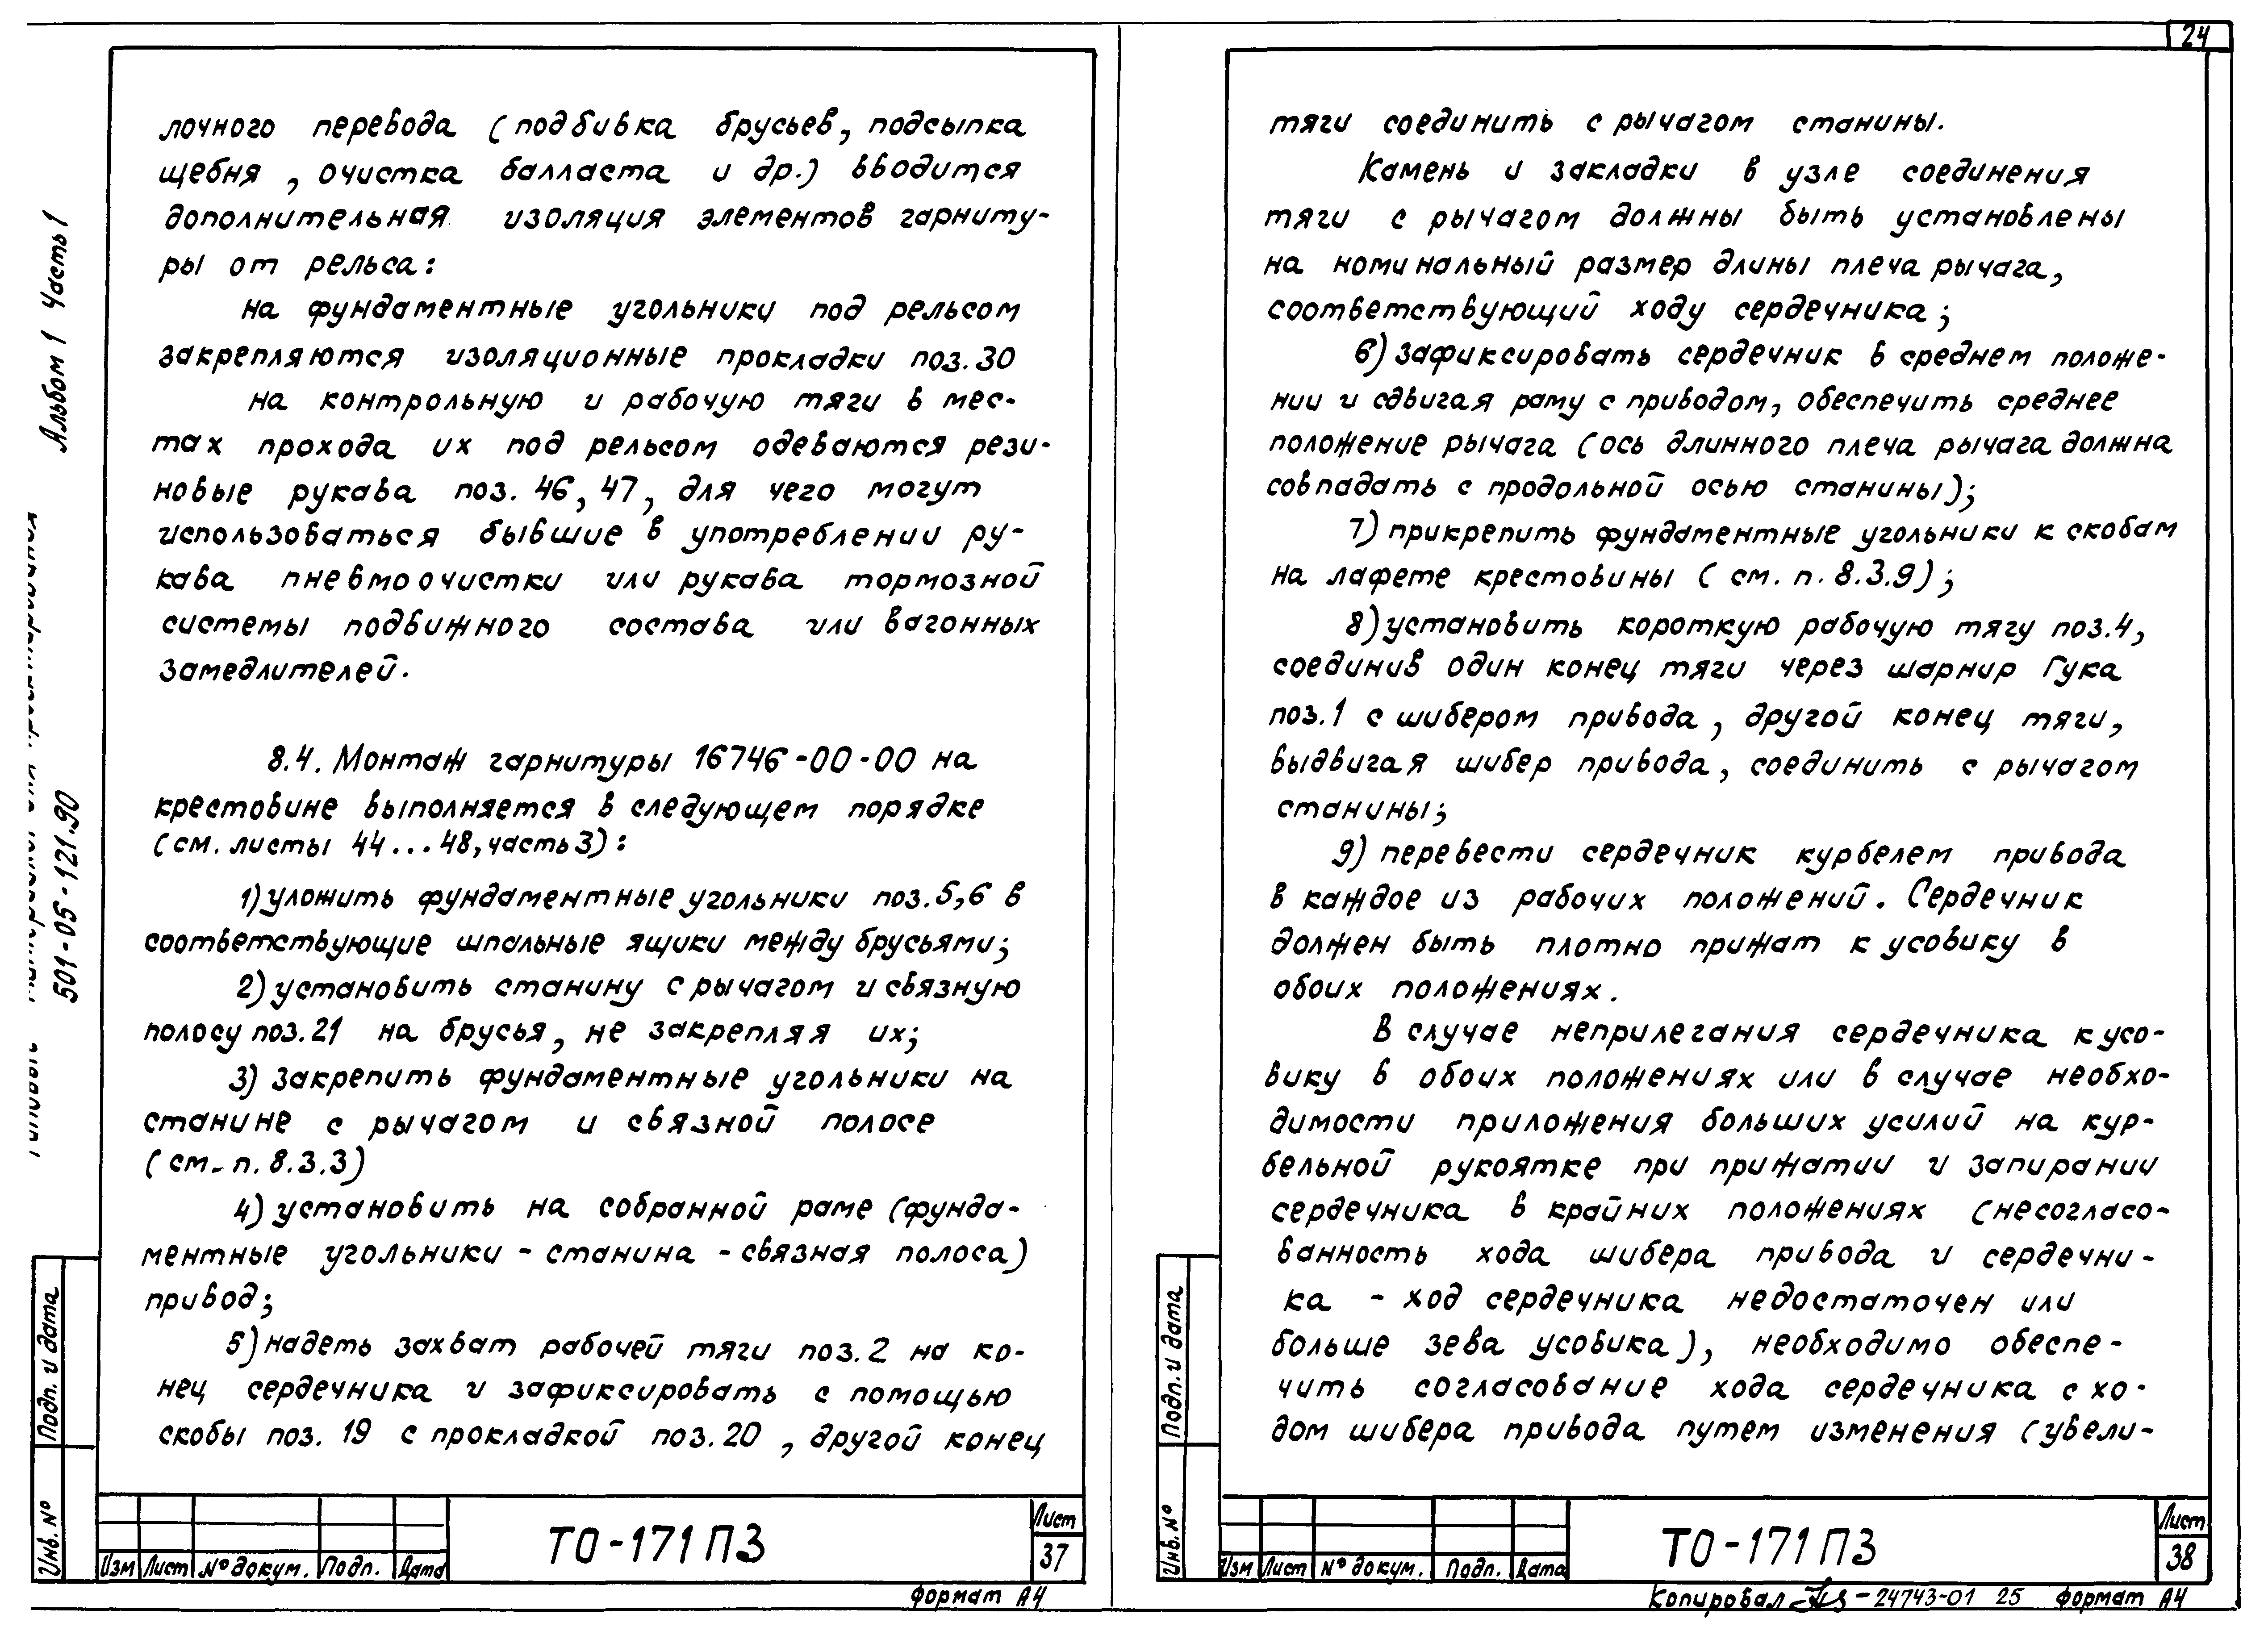 24
лочного перевода (подбивка брусьев, подсыпка
щебня, очистка балласта и др.) вводится
дополнительная изоляция элементов гарниту-
ры от рельса:
на фундаментные угольники под рельсом
закрепляются изоляционные прокладки поз.30
на контрольную и рабочую тяги в мес-
тах прохода их под рельсом одеваются рези-
новые рукава поз. 46, 47, для чего могут
использоваться бывшие в употреблении ру-
кава пневмоочистки или рукава тормозной
системы подвижного состава или вагонных
замедлителей.
8.4. Монтаж гарнитуры 16746-00-00 на
крестовине выполняется в следующем порядке
(см. листы 44...48, часть 3):
1) уложить фундаментные угольники поз.5,6 в
соответствующие шпальные ящики между брусьями;
2) установить станину с рычагом и связную
полосу поз.21 на брусья, не закрепляя их;
3) закрепить фундаментные угольники на
станине с рычагом и связной полосе
(см. п. 8.3.3)
4) установить на собранной раме (фунда-
ментные угольники - станина - связная полоса)
привод;
5) надеть захват рабочей тяги поз.2 на ко-
нец сердечника и зафиксировать с помощью
скобы поз. 19 с прокладкой поз.20, другой конец
Альбом 1 Часть 1
501-05-121.90
Подп. и дата
Инв. №
Изм Лист № докум. Подп. Дата
ТО-171 ПЗ
Лист
37
Формат А4
тяги соединить с рычагом станины.
Камень и закладки в узле соединения
тяги с рычагом должны быть установлены
на номинальный размер длины плеча рычага,
соответствующий ходу сердечника;
6) зафиксировать сердечник в среднем положе-
нии и сдвигая раму с приводом, обеспечить среднее
положение рычага (ось длинного плеча рычага должна
совпадать с продольной осью станины);
7) прикрепить фундаментные угольники к скобам
на лафете крестовины (см. п. 8.3.9);
8) установить короткую рабочую тягу поз.4,
соединив один конец тяги через шарнир Гука
поз.1 с шибером привода, другой конец тяги,
выдвигая шибер привода, соединить с рычагом
станины;
9) перевести сердечник курбелем привода
в каждое из рабочих положений. Сердечник
должен быть плотно прижат к усовику в
обоих положениях.
В случае неприлегания сердечника к усо-
вику в обоих положениях или в случае необхо-
димости приложения больших усилий на кур-
бельной рукоятке при прижатии и запирании
сердечника в крайних положениях (несогласо-
ванность хода шибера привода и сердечни-
ка - ход сердечника недостаточен или
больше зева усовика), необходимо обеспе-
чить согласование хода сердечника с хо-
дом шибера привода путем изменения (увели-
Подп. и дата
Инв. №
Изм Лист № докум. Подп. Дата
ТО-171 ПЗ
Лист
38
Копировал - 24743-01 25 Формат А4